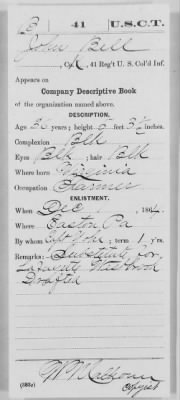 B 41 U.S.C.T.
John Bell
, Co. K, 41 Reg't U. S. Col'd Inf.
Appears on
Company Descriptive Book
of the organization named above.
DESCRIPTION.
Age 35 years; height 5 feet 3½ inches.
Complexion Blk
Eyes Blk; hair Blk
Where born Virginia
Occupation Farmer
ENLISTMENT.
When Dec , 1864.
Where Easton Pa
By whom Capt Yohe; term 1 y'rs.
Remarks: Substitute for
Westbrook
Drafted
Calhoun
(383g) Copyist.